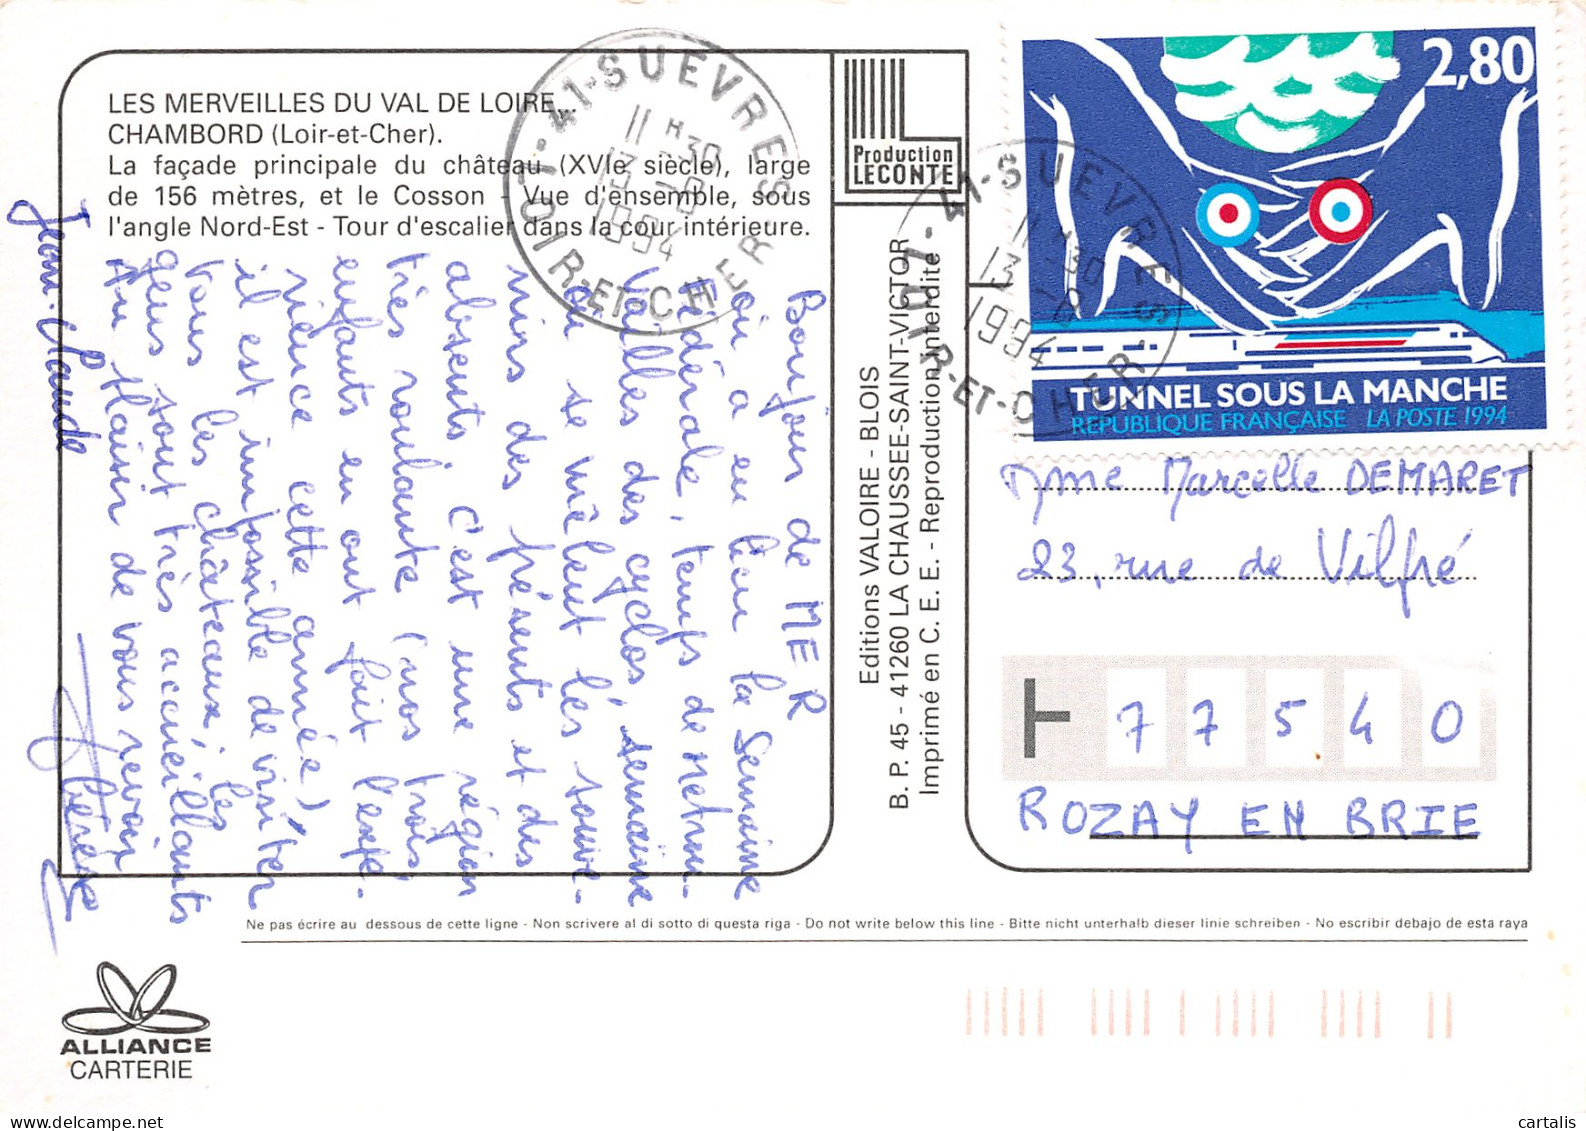 LES MERVEILLES DU VAL DE LOIRE...
CHAMBORD (Loir-et-Cher).
La façade principale du château (XVIe siècle), large
de 156 mètres, et le Cosson - Vue d'ensemble, sous
l'angle Nord-Est - Tour d'escalier dans la cour intérieure.
Bonjour de MER
où a eu lieu la Semaine
Fédérale, temps de retrou-
vailles des cyclos, semaine
où se mêlent les souve-
nirs des présents et des
absents. C'est une région
très roulante (nos trois
enfants en ont fait l'expé-
rience cette année)
il est impossible de visiter
tous les châteaux, les
gens sont très accueillants
Au plaisir de vous revoir
Jean-Claude
Production
LECONTE
Editions VALOIRE - BLOIS
B. P. 45 - 41260 LA CHAUSSEE-SAINT-VICTOR
Imprimé en C. E. E. - Reproduction interdite
41-SUEVRES
11 H 30
13 -8
1994
LOIR-ET-CHER
41-SUEVRES
11 H 30
13 -8
1994
LOIR-ET-CHER
2,80
TUNNEL SOUS LA MANCHE
RÉPUBLIQUE FRANÇAISE LA POSTE 1994
Mme Marcelle DEMARET
23, rue de Vilpré
77540
ROZAY EN BRIE
Ne pas écrire au dessous de cette ligne - Non scrivere al di sotto di questa riga - Do not write below this line - Bitte nicht unterhalb dieser linie schreiben - No escribir debajo de esta raya
ALLIANCE
CARTERIE
www.delcampe.net
cartalis